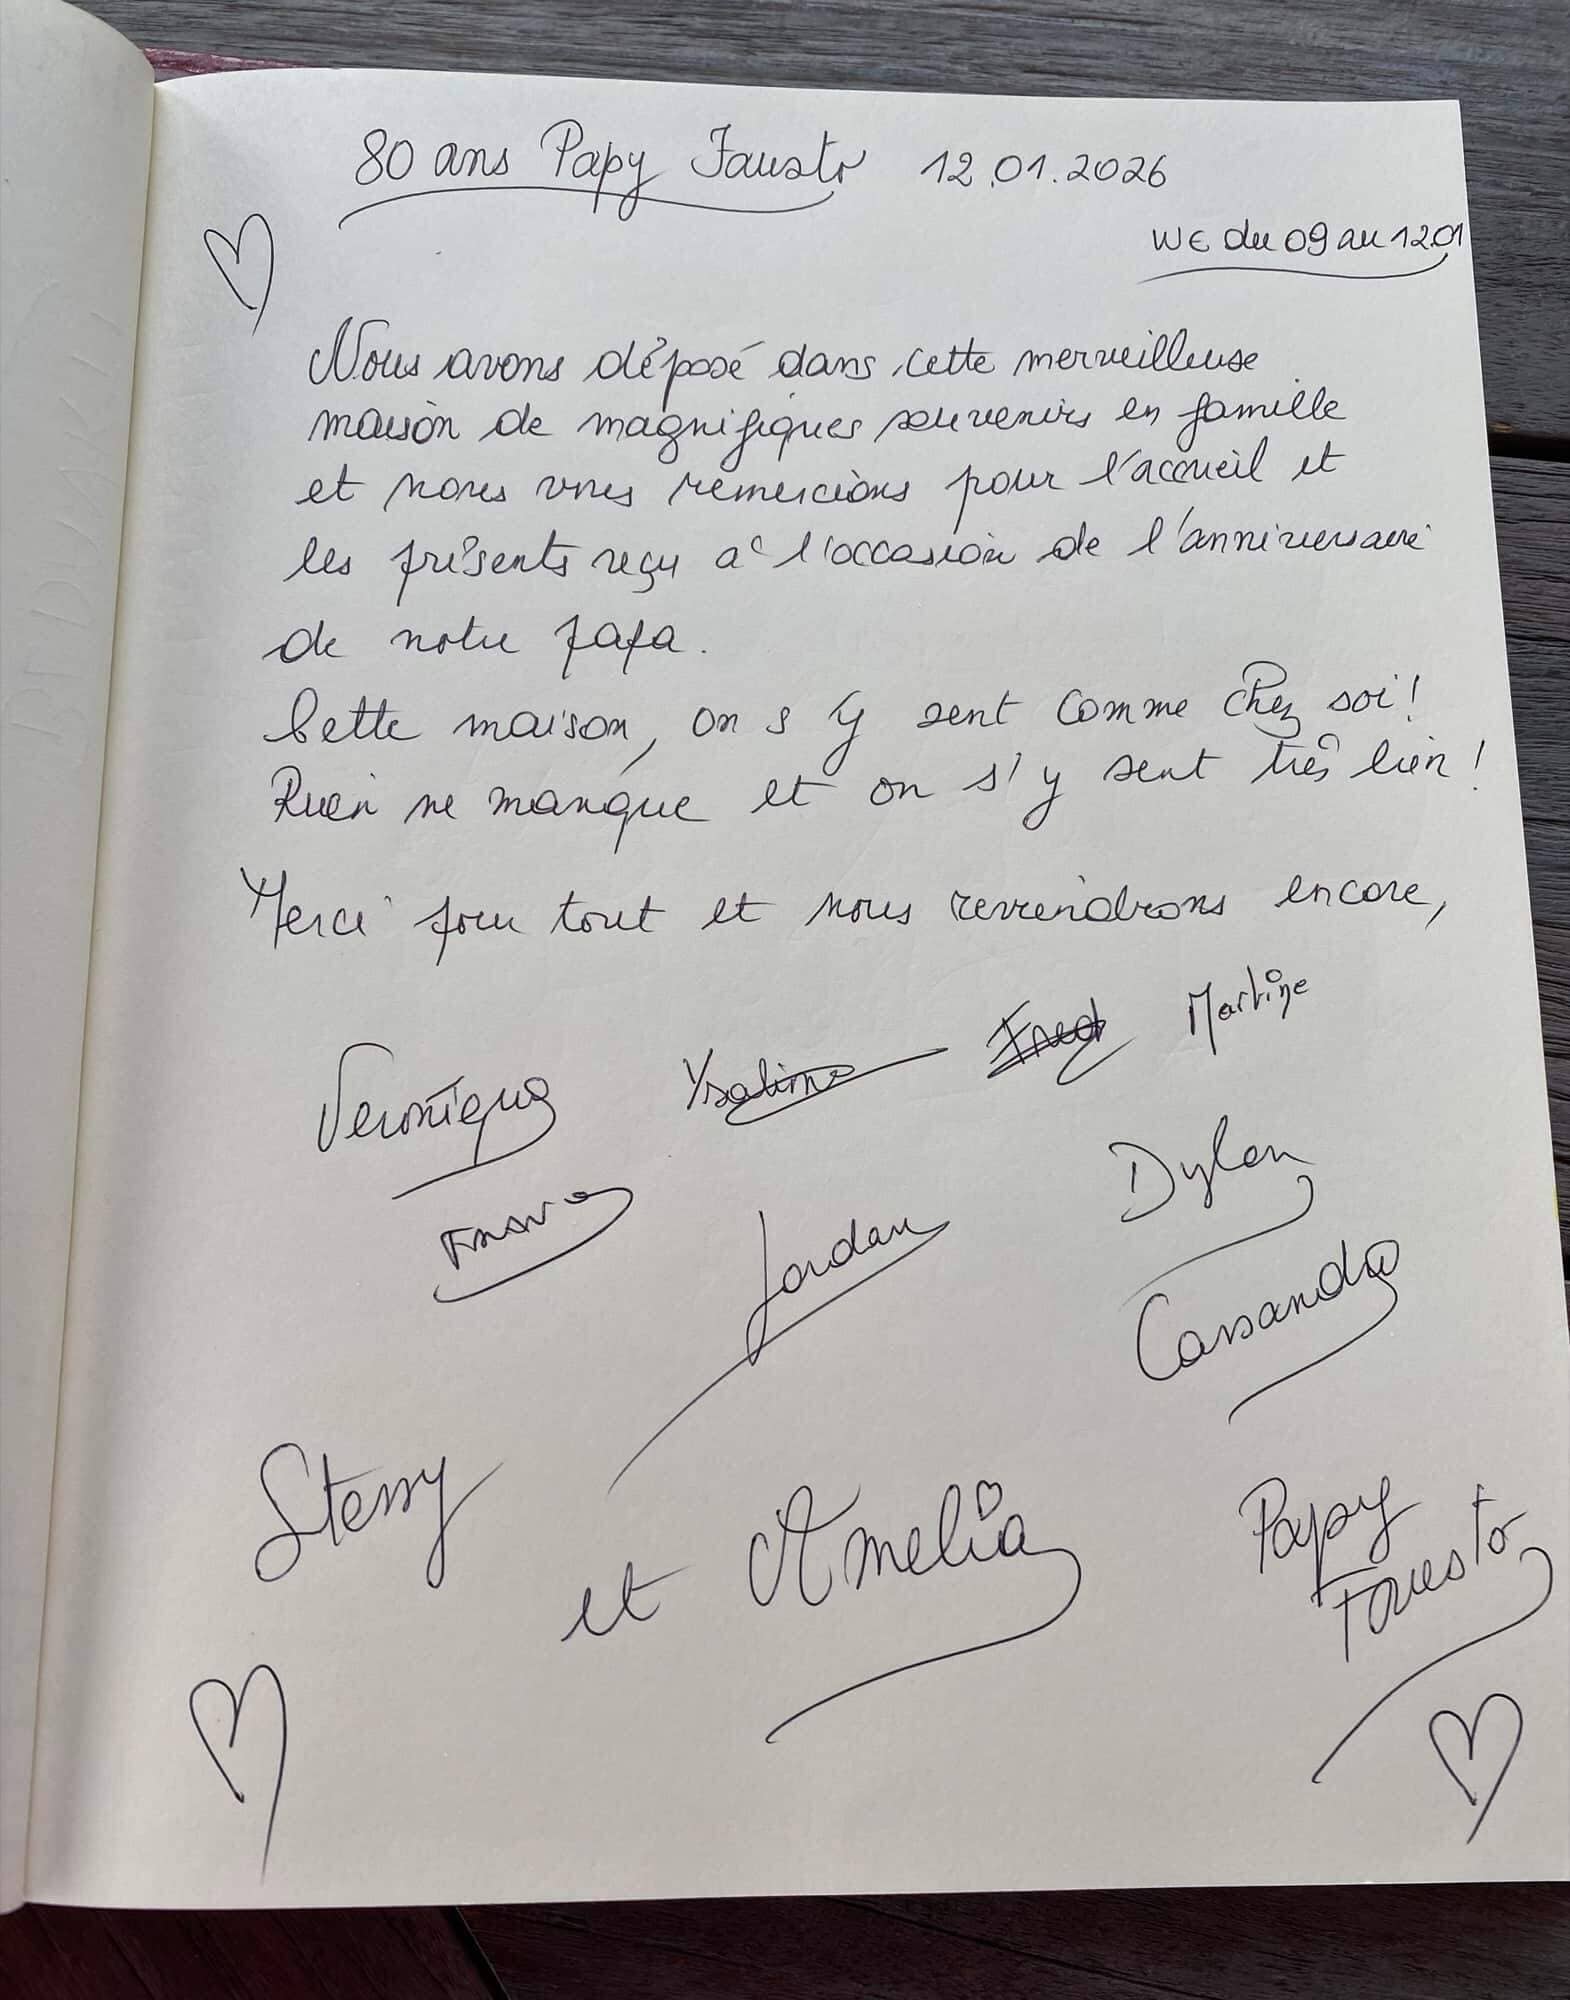 80 ans Papy Fausto 12.01.2026
WE du 09 au 12.01
Nous avons déposé dans cette merveilleuse
maison de magnifiques souvenirs en famille
et nous vous remercions pour l'accueil et
les présents reçu à l'occasion de l'anniversaire
de notre papa.
Cette maison, on s'y sent comme chez soi!
Rien ne manque et on s'y sent très bien!
Merci pour tout et nous reviendrons encore,
Veronique Ysaline Fred Martine
Jordan Dylan
Cassandra
Stessy et Amelia Papy
Fausto